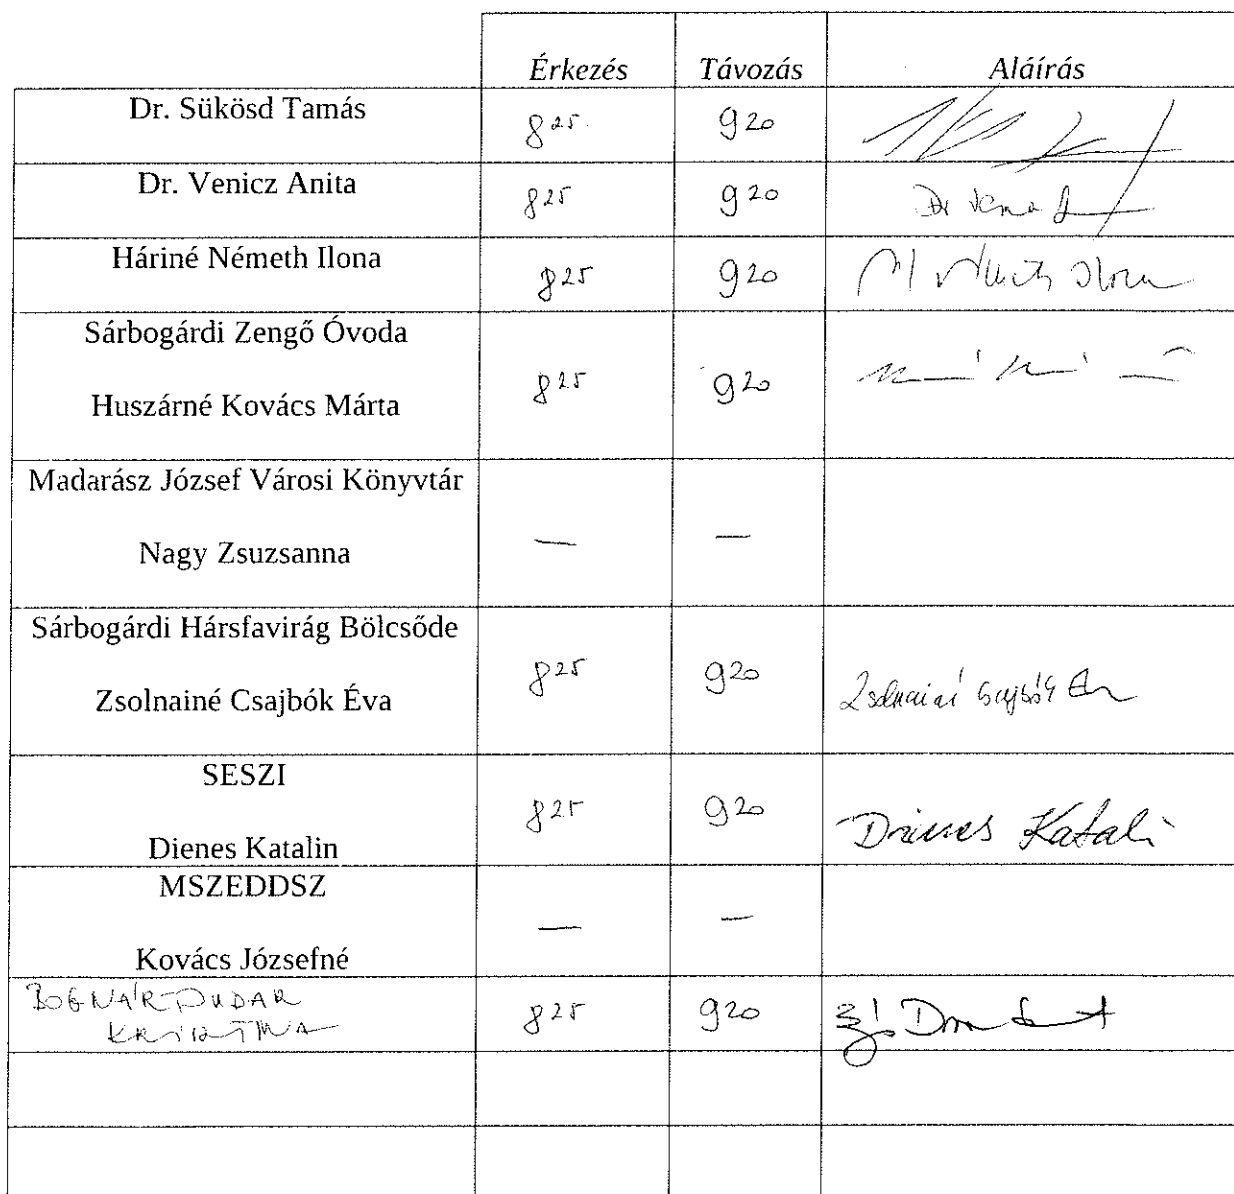 Érkezés Távozás Aláírás
Dr. Sükösd Tamás 8 25 9 20
Dr. Venicz Anita 8 25 9 20
Háriné Németh Ilona 8 25 9 20
Sárbogárdi Zengő Óvoda
Huszárné Kovács Márta 8 25 9 20
Madarász József Városi Könyvtár
Nagy Zsuzsanna — —
Sárbogárdi Hársfavirág Bölcsőde
Zsolnainé Csajbók Éva 8 25 9 20 Zsolnainé Csajbók Éva
SESZI
Dienes Katalin 8 25 9 20 Dienes Katali
MSZEDDSZ
Kovács Józsefné — —
BOGNÁR-DUDAR 8 25 9 20
KRISZTINA